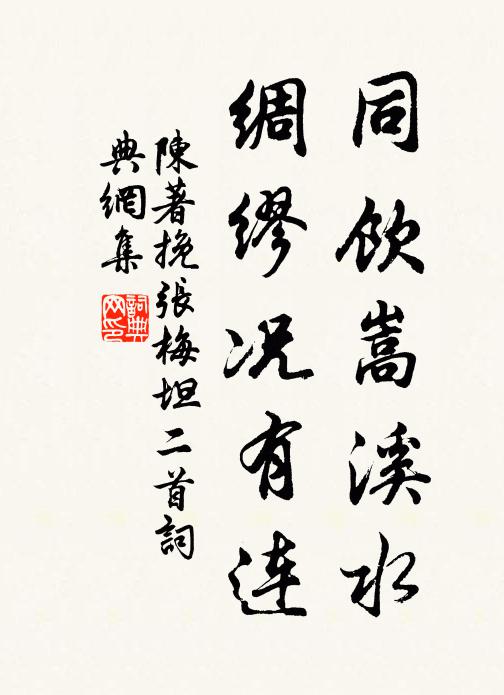 同飲嵩溪水
綢繆况有連
陳著挽張梅坦二首詞
典網集
詞典网印